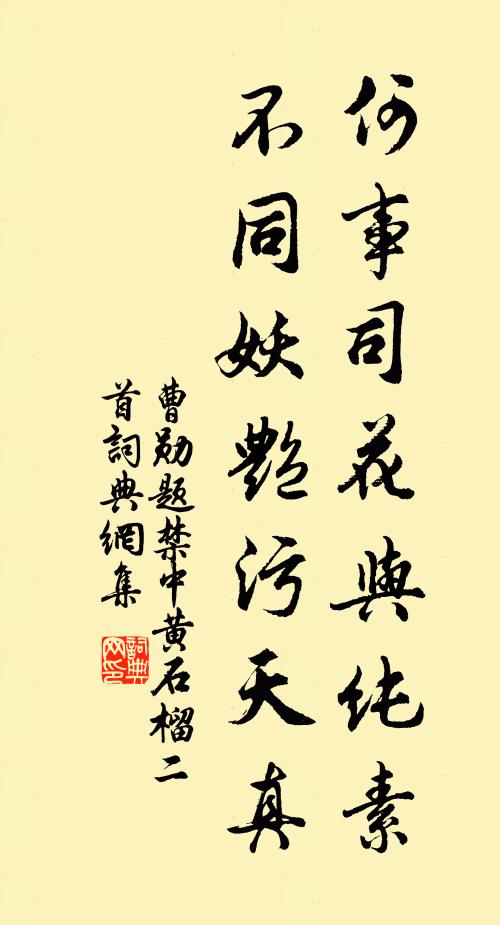 何事司花與纯素
不同妖艷污天真
曹勛题禁中黄石榴二
首詞典網集
詞典
网印